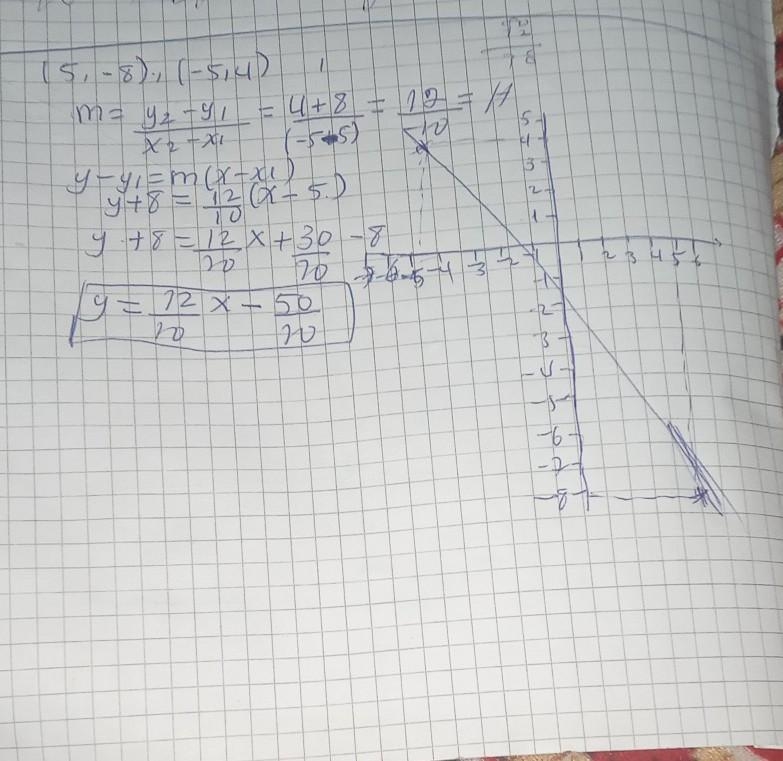 (5, -8), (-5,4)
m = y₂ - y₁ / x₂ - x₁ = 4+8 / (-5-5) = 12 / 10 =
y - y₁ = m(x - x₁)
y + 8 = 12/10 (x - 5)
y + 8 = 12/10 x + 30/10 - 8
y = 12/10 x - 50/10
5
4
3
2
1
-7 -6 -5 -4 -3 -2 -1 1 2 3 4 5 6
-1
-2
-3
-4
-5
-6
-7
-8